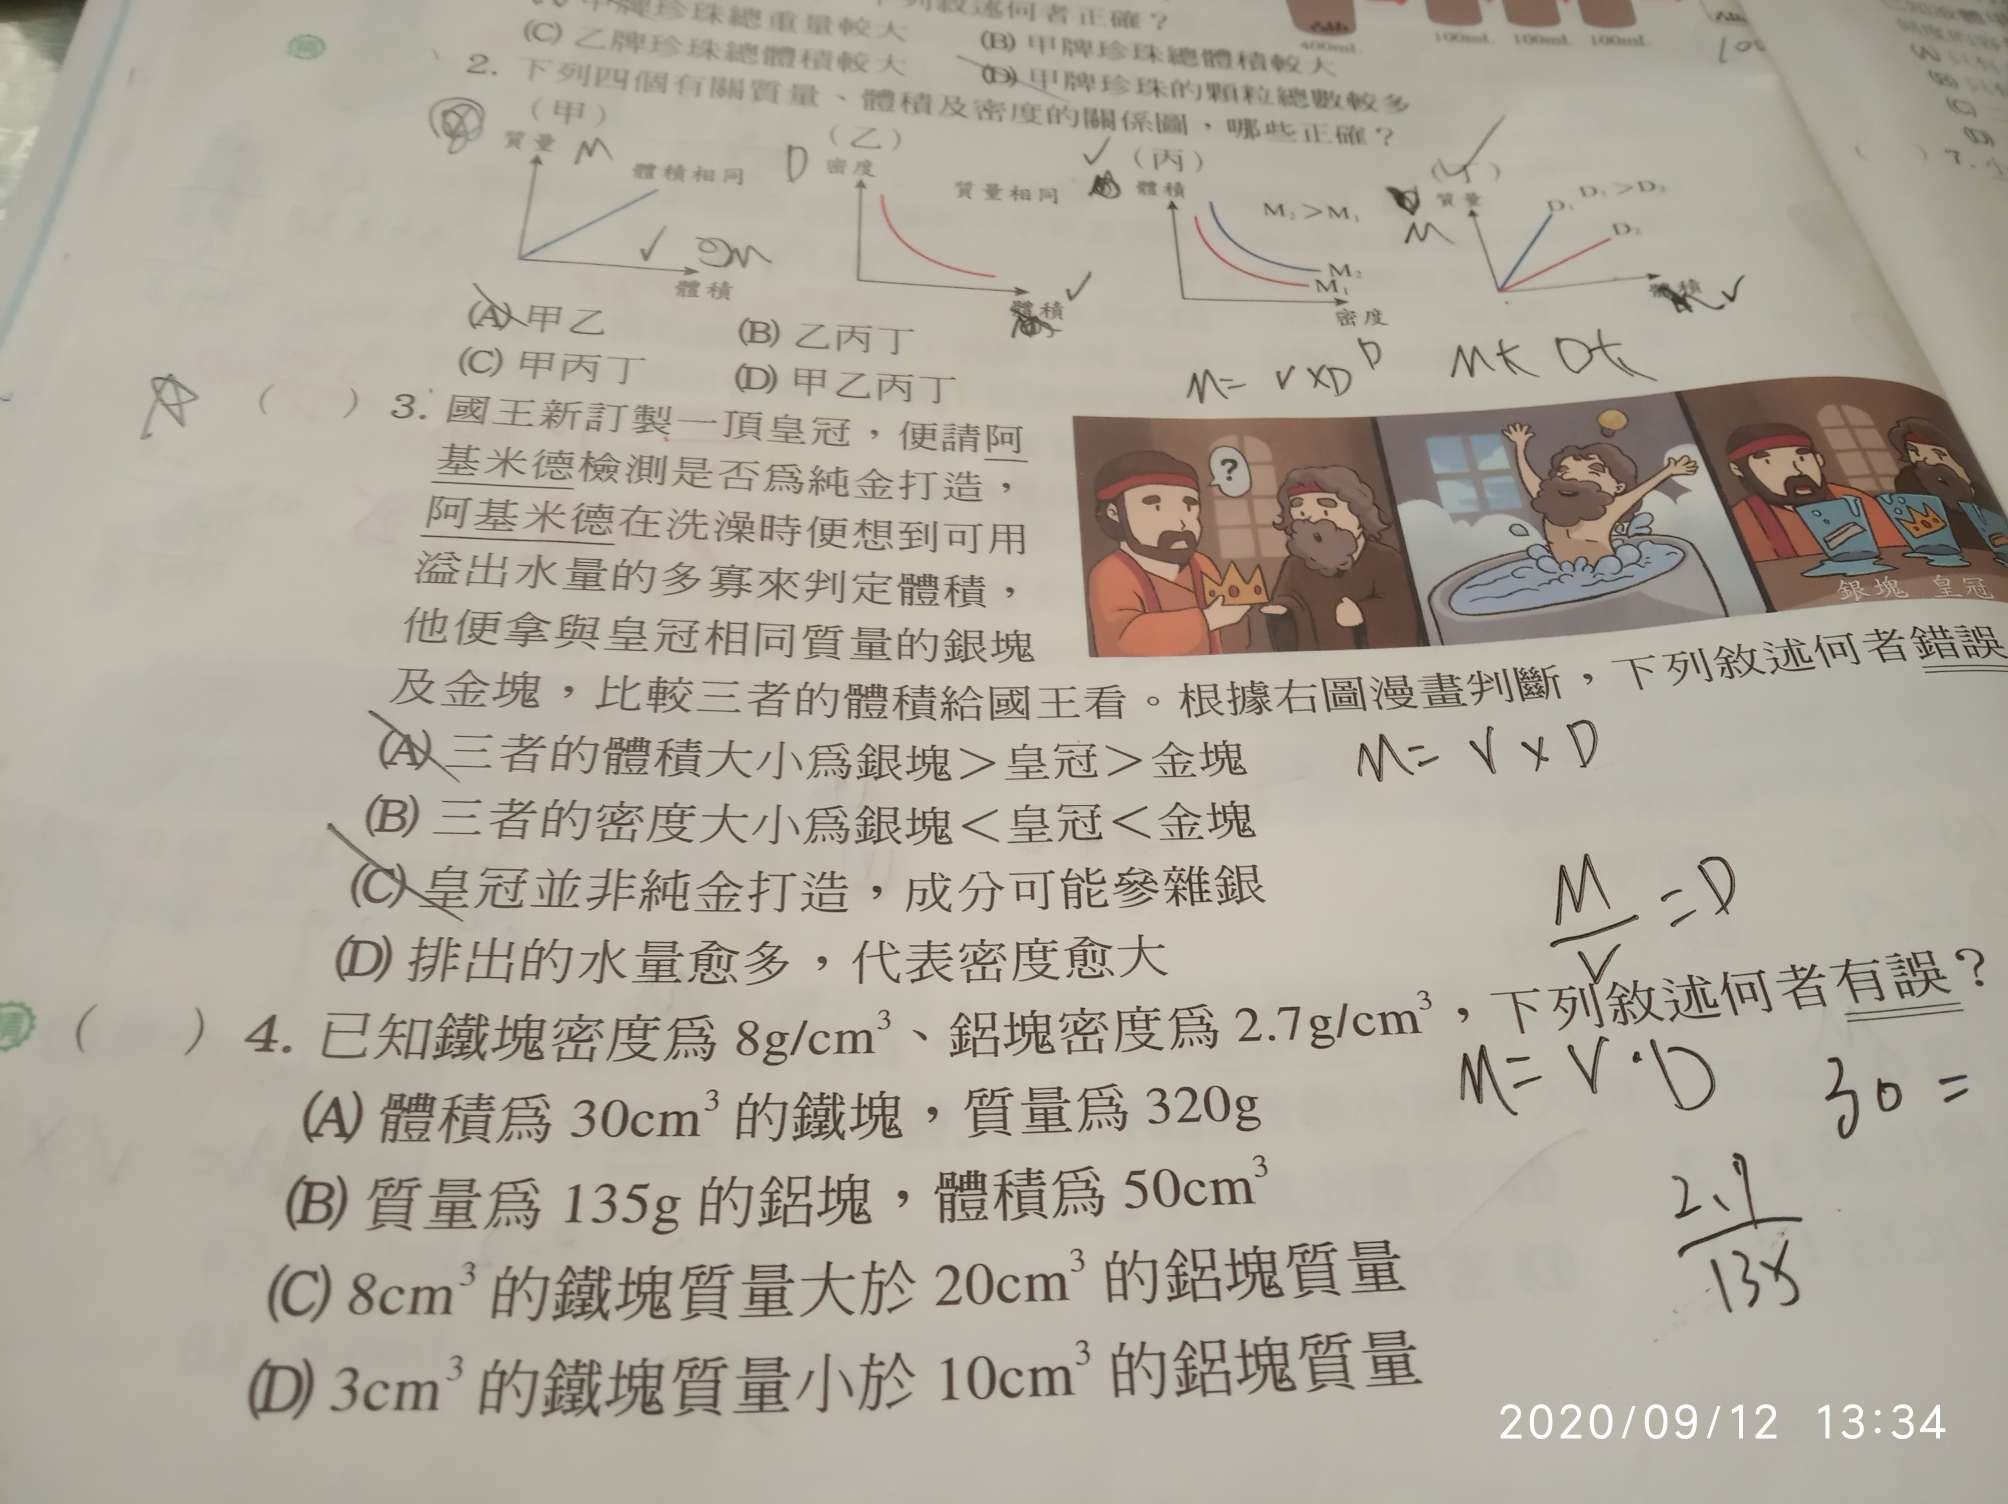 牌珍珠總重量較大
列敘述何者正確？
(B) 甲牌珍珠總體積較大
(C) 乙牌珍珠總體積較大
(D) 甲牌珍珠的顆粒總數較多
400mL 100mL 100mL 100mL
2. 下列四個有關質量、體積及密度的關係圖，哪些正確？
(甲)
質量 M
體積相同
體積
(乙)
D 密度
質量相同
體積
(丙)
體積
M₂＞M₁
M₂
M₁
密度
(丁)
質量
M
D₁＞D₂
D₁
D₂
體積
(A) 甲乙
(B) 乙丙丁
(C) 甲丙丁
(D) 甲乙丙丁
M= V×D
( ) 3. 國王新訂製一頂皇冠，便請阿
基米德檢測是否為純金打造，
阿基米德在洗澡時便想到可用
溢出水量的多寡來判定體積，
他便拿與皇冠相同質量的銀塊
及金塊，比較三者的體積給國王看。根據右圖漫畫判斷，下列敘述何者錯誤
?
銀塊 皇冠
(A) 三者的體積大小為銀塊＞皇冠＞金塊
M= V×D
(B) 三者的密度大小為銀塊＜皇冠＜金塊
(C) 皇冠並非純金打造，成分可能參雜銀
M/V =D
(D) 排出的水量愈多，代表密度愈大
( ) 4. 已知鐵塊密度為 8g/cm³、鋁塊密度為 2.7g/cm³，下列敘述何者有誤？
M= V·D
30 =
(A) 體積為 30cm³ 的鐵塊，質量為 320g
(B) 質量為 135g 的鋁塊，體積為 50cm³
2.7
135
(C) 8cm³ 的鐵塊質量大於 20cm³ 的鋁塊質量
(D) 3cm³ 的鐵塊質量小於 10cm³ 的鋁塊質量
2020/09/12 13:34